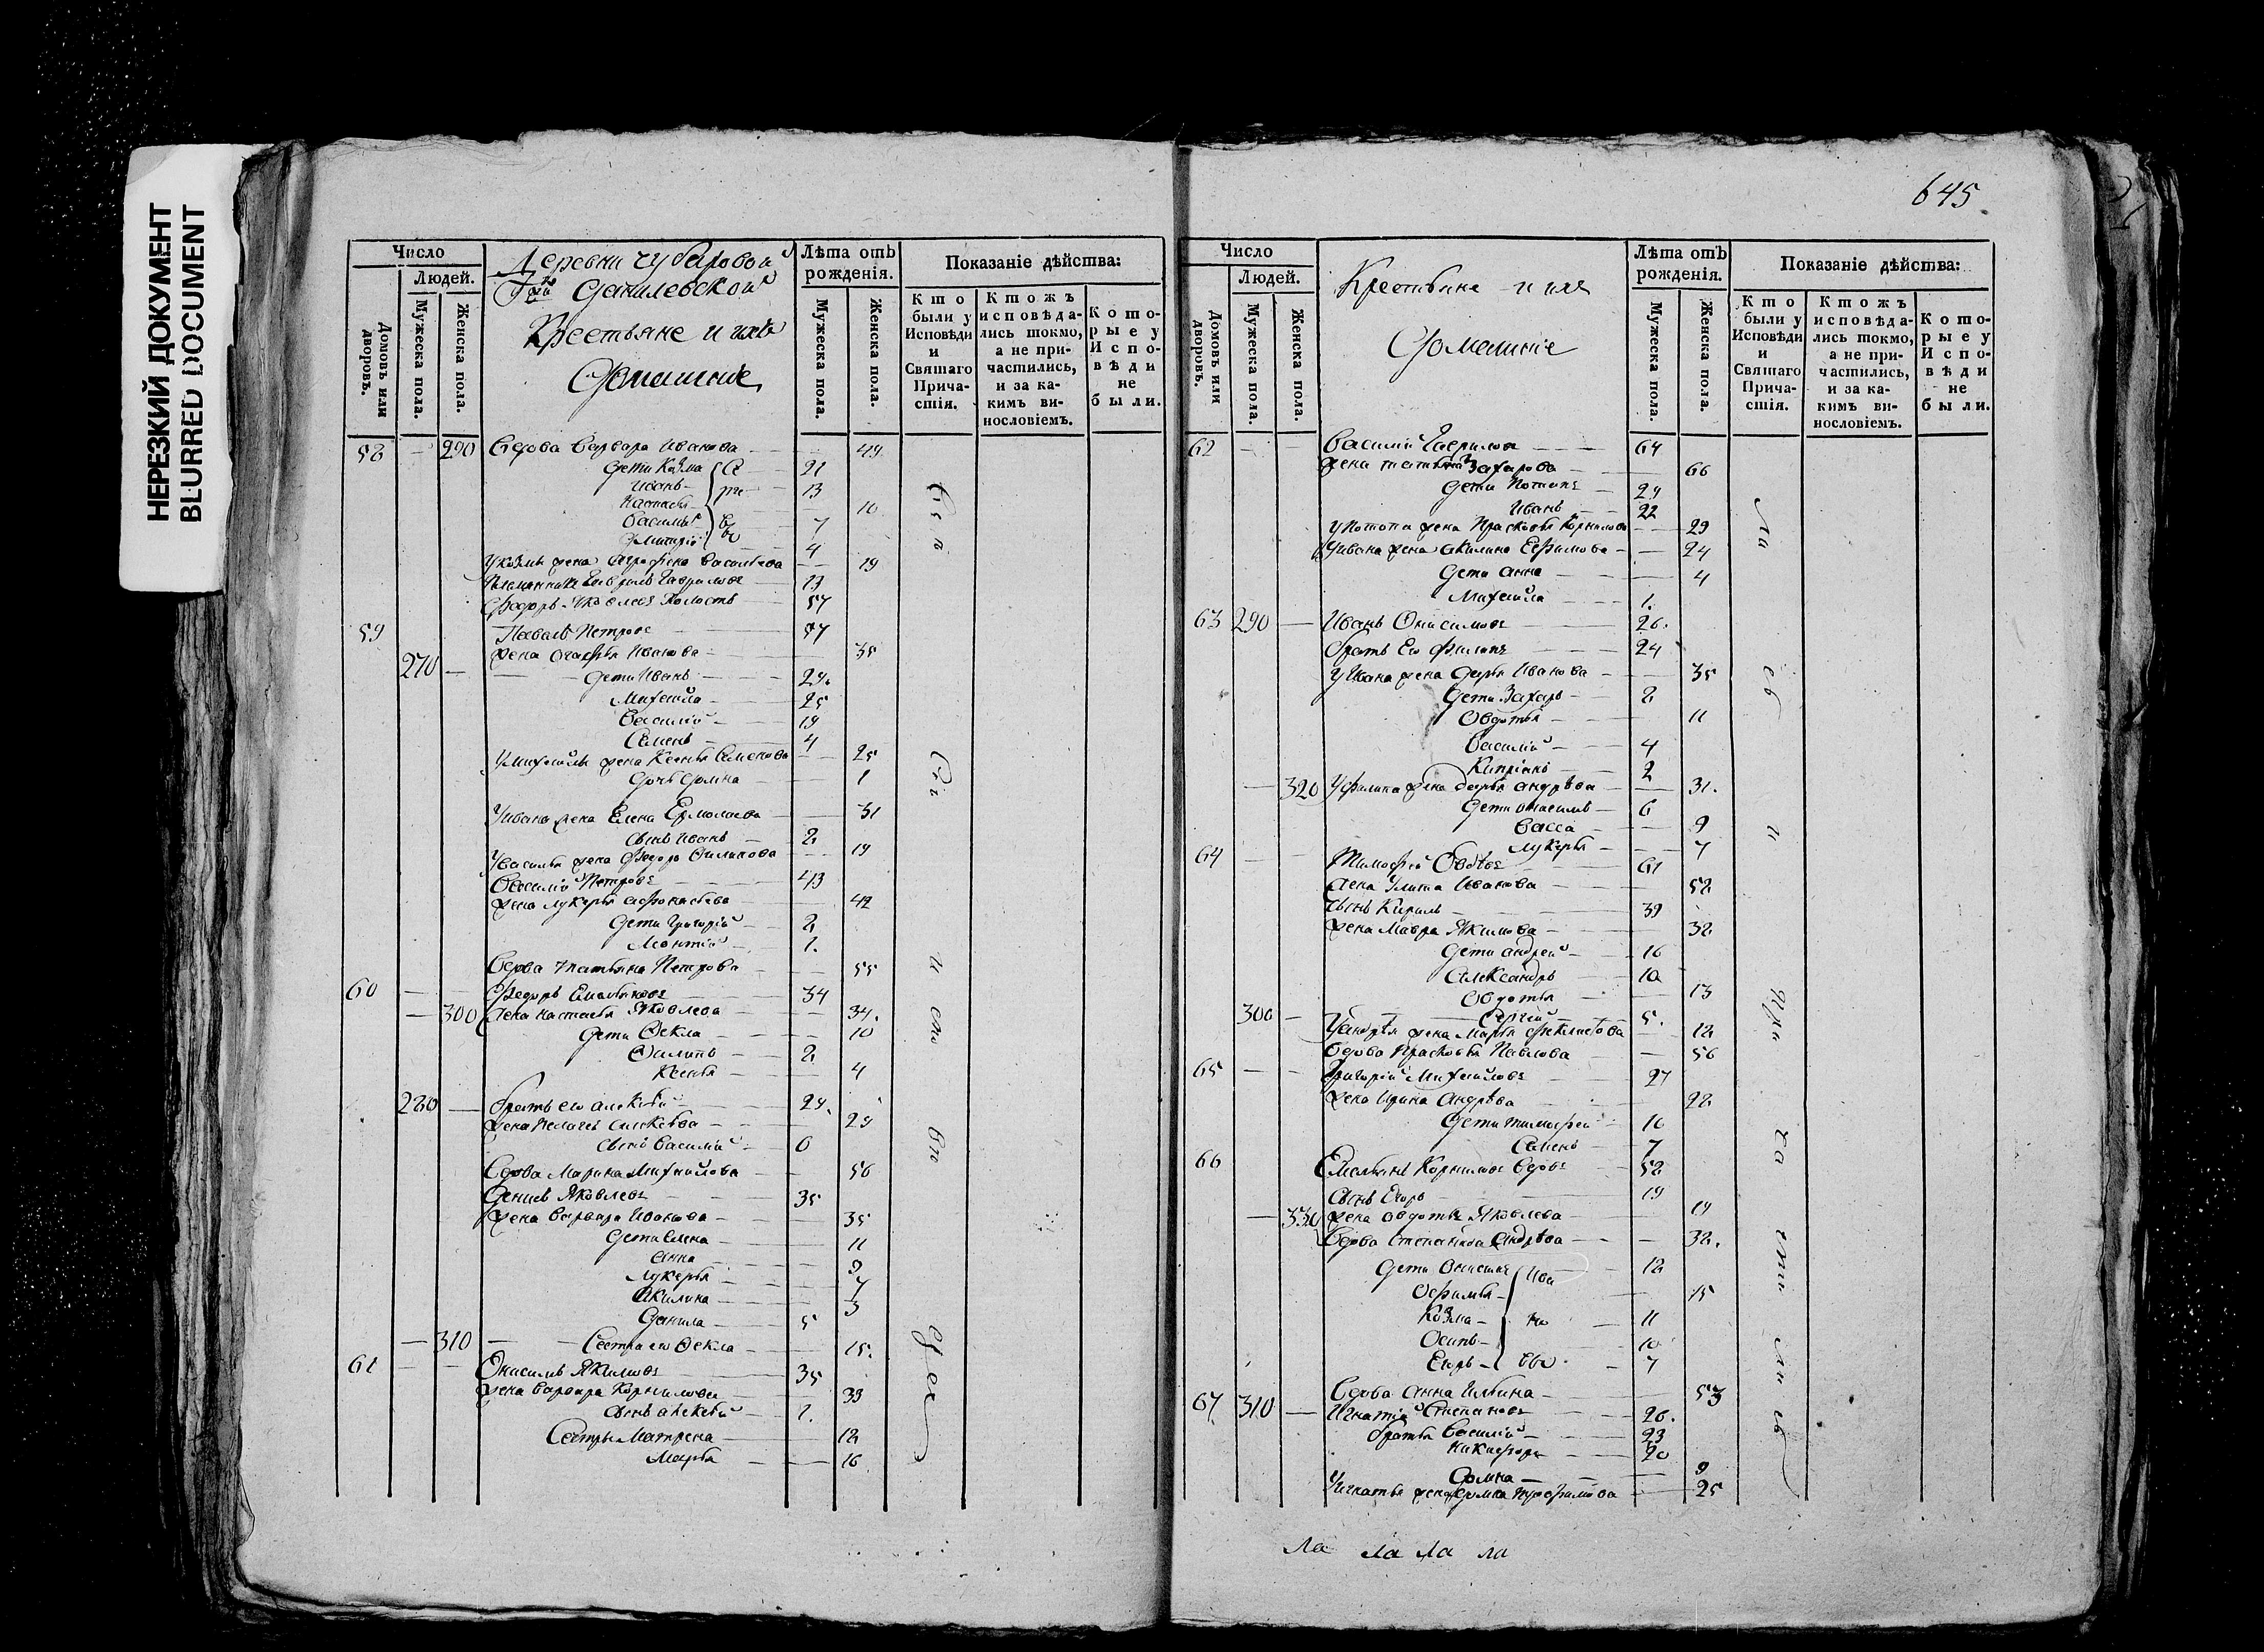 НЕРЕЗКИЙ ДОКУМЕНТ
BLURRED DOCUMENT
645
Число
Людей.
Домовъ или дворовъ.
Мужеска пола.
Женска пола.
Деревни Чубаровой
Данилевской
Крестьяне и ихъ
Домашніе
Лѣта отъ рожденія.
Мужеска пола.
Женска пола.
Показаніе дѣйства:
Кто были у Исповѣди и Святаго Причастія.
Ктожъ исповѣдались токмо, а не причастились, и за какимъ винословіемъ.
Которые у Исповѣди не были.
58 — 290 Вдова Варвара Иванова 49
Дети Козма 21
Иванъ 13
Настасья 10
Василий 7
Дмитрий 4
У Козмы жена Аграфена Васильева 19
Племянникъ Гаврилъ Гавриловъ 13
Федоръ Яковлевъ Холостъ 57
59 Павелъ Петровъ 57
жена Агафья Иванова 35
270 — Дети Иванъ 29.
Михайла 25
Василий 19
Семенъ 4
У Михайлы жена Ксенья Семенова 25
Дочь Домна 1
У Ивана жена Елена Ермолаева 31
Сынъ Иванъ 2
У Василья жена 19
Василий Петровъ 43
жена Лукерья Афонасьева 42
Дети Григорий 2
1.
Вдова Татьяна Петрова 55
60 — — Федоръ Емельяновъ 34
— 300 жена Настасья Яковлева 34.
Дети Фекла 10
Филипъ 2
Ксенья 4
280 — братъ ево Алексѣй 29.
жена Пелагея Алексѣева 29
Сынъ Василий 6
Вдова Марина Михайлова 56
Денисъ Яковлевъ 35
жена Варвара Иванова 35
Дети Елена 11
Анна 9
Лукерья 7
Акилина 3
Данила 5
— 310 — Сестра ево Фекла 15.
61 — — Онисимъ Якимовъ 35
жена Варвара Корнилова 33
Сынъ Алексѣй 1.
Сестры Матрена 12
Марья 16
Число
Людей.
Домовъ или дворовъ.
Мужеска пола.
Женска пола.
Крестьяне и ихъ
Домашніе
Лѣта отъ рожденія.
Мужеска пола.
Женска пола.
Показаніе дѣйства:
Кто были у Исповѣди и Святаго Причастія.
Ктожъ исповѣдались токмо, а не причастились, и за какимъ винословіемъ.
Которые у Исповѣди не были.
62 — — Василий Гавриловъ 64
жена Татьяна Захарова 66
Дети Потапъ 29
Иванъ 22
У Потапа жена Прасковья Корнилова 29
У Ивана жена Акилина Ефимова 24
Дети Анна 4
Михайла 1.
63 290 — Иванъ Онисимовъ 26.
братъ Ево Филипъ 24
У Ивана жена Дарья Иванова 35
Дети Захаръ 2
Овдотья 11
Василий 4
Киприянъ 2
— 320 У Филипа жена Дарья Андрѣева 31.
Дети Онисимъ 6
Васса 9
Лукерья 7
64 — — Тимофей 61
жена Улита Иванова 52
сынъ Кирилъ 39
жена Мавра Якимова 32
Дети Андрей 16
Александръ 10
Овдотья 13
300 — Сергей 5.
У Андрѣя жена Марья Феклистова 18
Вдова Прасковья Павлова 56
65 — — Григорий Михайловъ 27
жена Ирина Андрѣева 22
Дети Тимофей 16
Семенъ 7
66 Емельянъ Корниловъ Вдовъ 52
Сынъ Егоръ 19
— 330 жена Овдотья Яковлева 19
Вдова Степанида Андрѣева 32.
Дети 12
Офимья 15
Козма 11
Осипъ 10
Егоръ 7
Вдова Анна Ильина 53
67 310 — Игнатий Степановъ 26.
братья Василий 23
Никифоръ 20
Домна 9
У Игнатья жена Домна Трофимова 25
ла ла ла ла